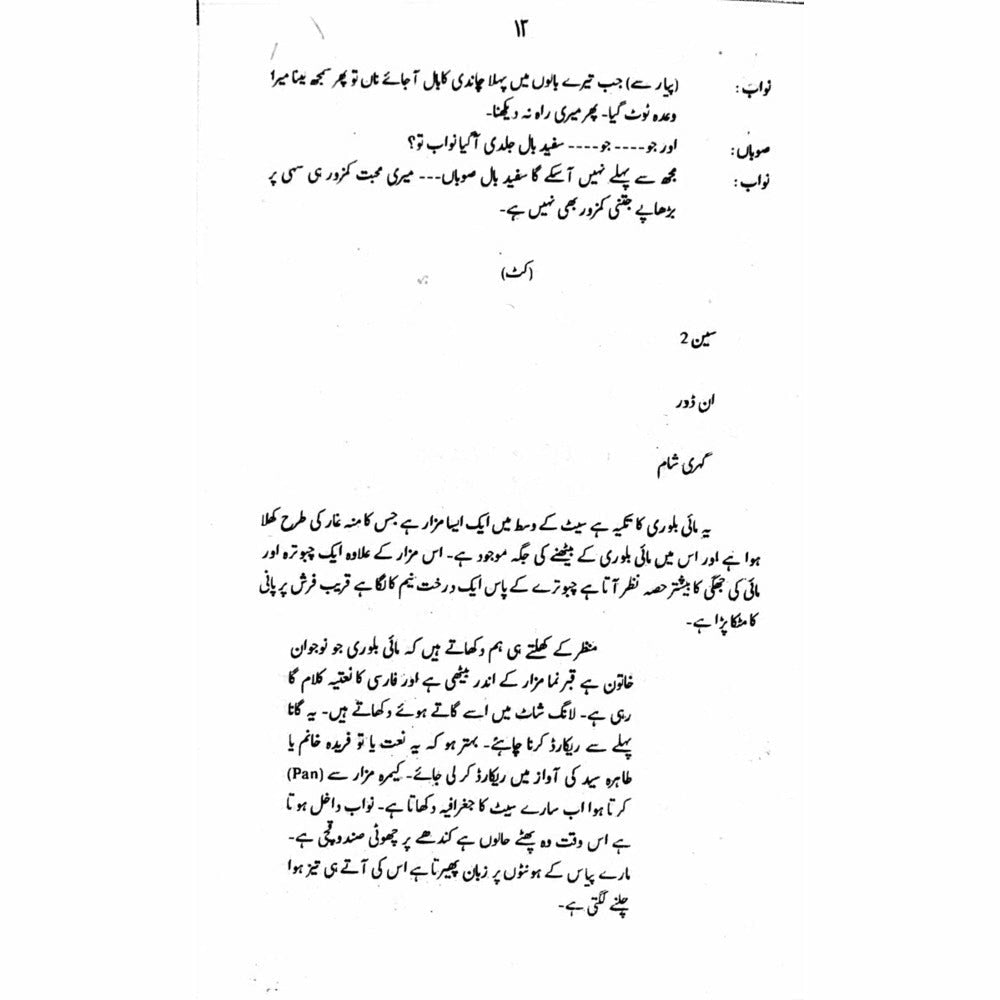 ۱۲
نواب: (پیار سے) جب تیرے بالوں میں پہلا چاندی کا بال آ جائے ناں تو پھر سمجھ لینا میرا
وعدہ ٹوٹ گیا۔ پھر میری راہ نہ دیکھنا۔
صوباں: اور جو---- جو---- سفید بال جلدی آ گیا نواب تو؟
نواب: مجھ سے پہلے نہیں آ سکے گا سفید بال صوباں--- میری محبت کمزور ہی سہی پر
بڑھاپے جتنی کمزور بھی نہیں ہے۔
(کٹ)
سین 2
ان ڈور
گہری شام
یہ مائی بلوری کا تکیہ ہے سیٹ کے وسط میں ایک ایسا مزار ہے جس کا منہ غار کی طرح کھلا
ہوا ہے اور اس میں مائی بلوری کے بیٹھنے کی جگہ موجود ہے۔ اس مزار کے علاوہ ایک چبوترہ اور
مائی کی جھگی کا بیشتر حصہ نظر آتا ہے چبوترے کے پاس ایک درخت نیم کا لگا ہے قریب فرش پر پانی
کا مٹکا پڑا ہے۔
منظر کے کھلتے ہی ہم دکھاتے ہیں کہ مائی بلوری جو نوجوان
خاتون ہے قبر نما مزار کے اندر بیٹھی ہے اور فارسی کا نعتیہ کلام گا
رہی ہے۔ لانگ شاٹ میں اسے گاتے ہوئے دکھاتے ہیں۔ یہ گانا
پہلے سے ریکارڈ کرنا چاہئے۔ بہتر ہو کہ یہ نعت یا تو فریدہ خانم یا
طاہرہ سید کی آواز میں ریکارڈ کر لی جائے۔ کیمرہ مزار سے (Pan)
کرتا ہوا اب سارے سیٹ کا جغرافیہ دکھاتا ہے۔ نواب داخل ہوتا
ہے اس وقت وہ پھٹے حالوں ہے کندھے پر چھوٹی صندوقچی ہے۔
مارے پیاس کے ہونٹوں پر زبان پھیرتا ہے اس کی آتے ہی تیز ہوا
چلنے لگتی ہے۔